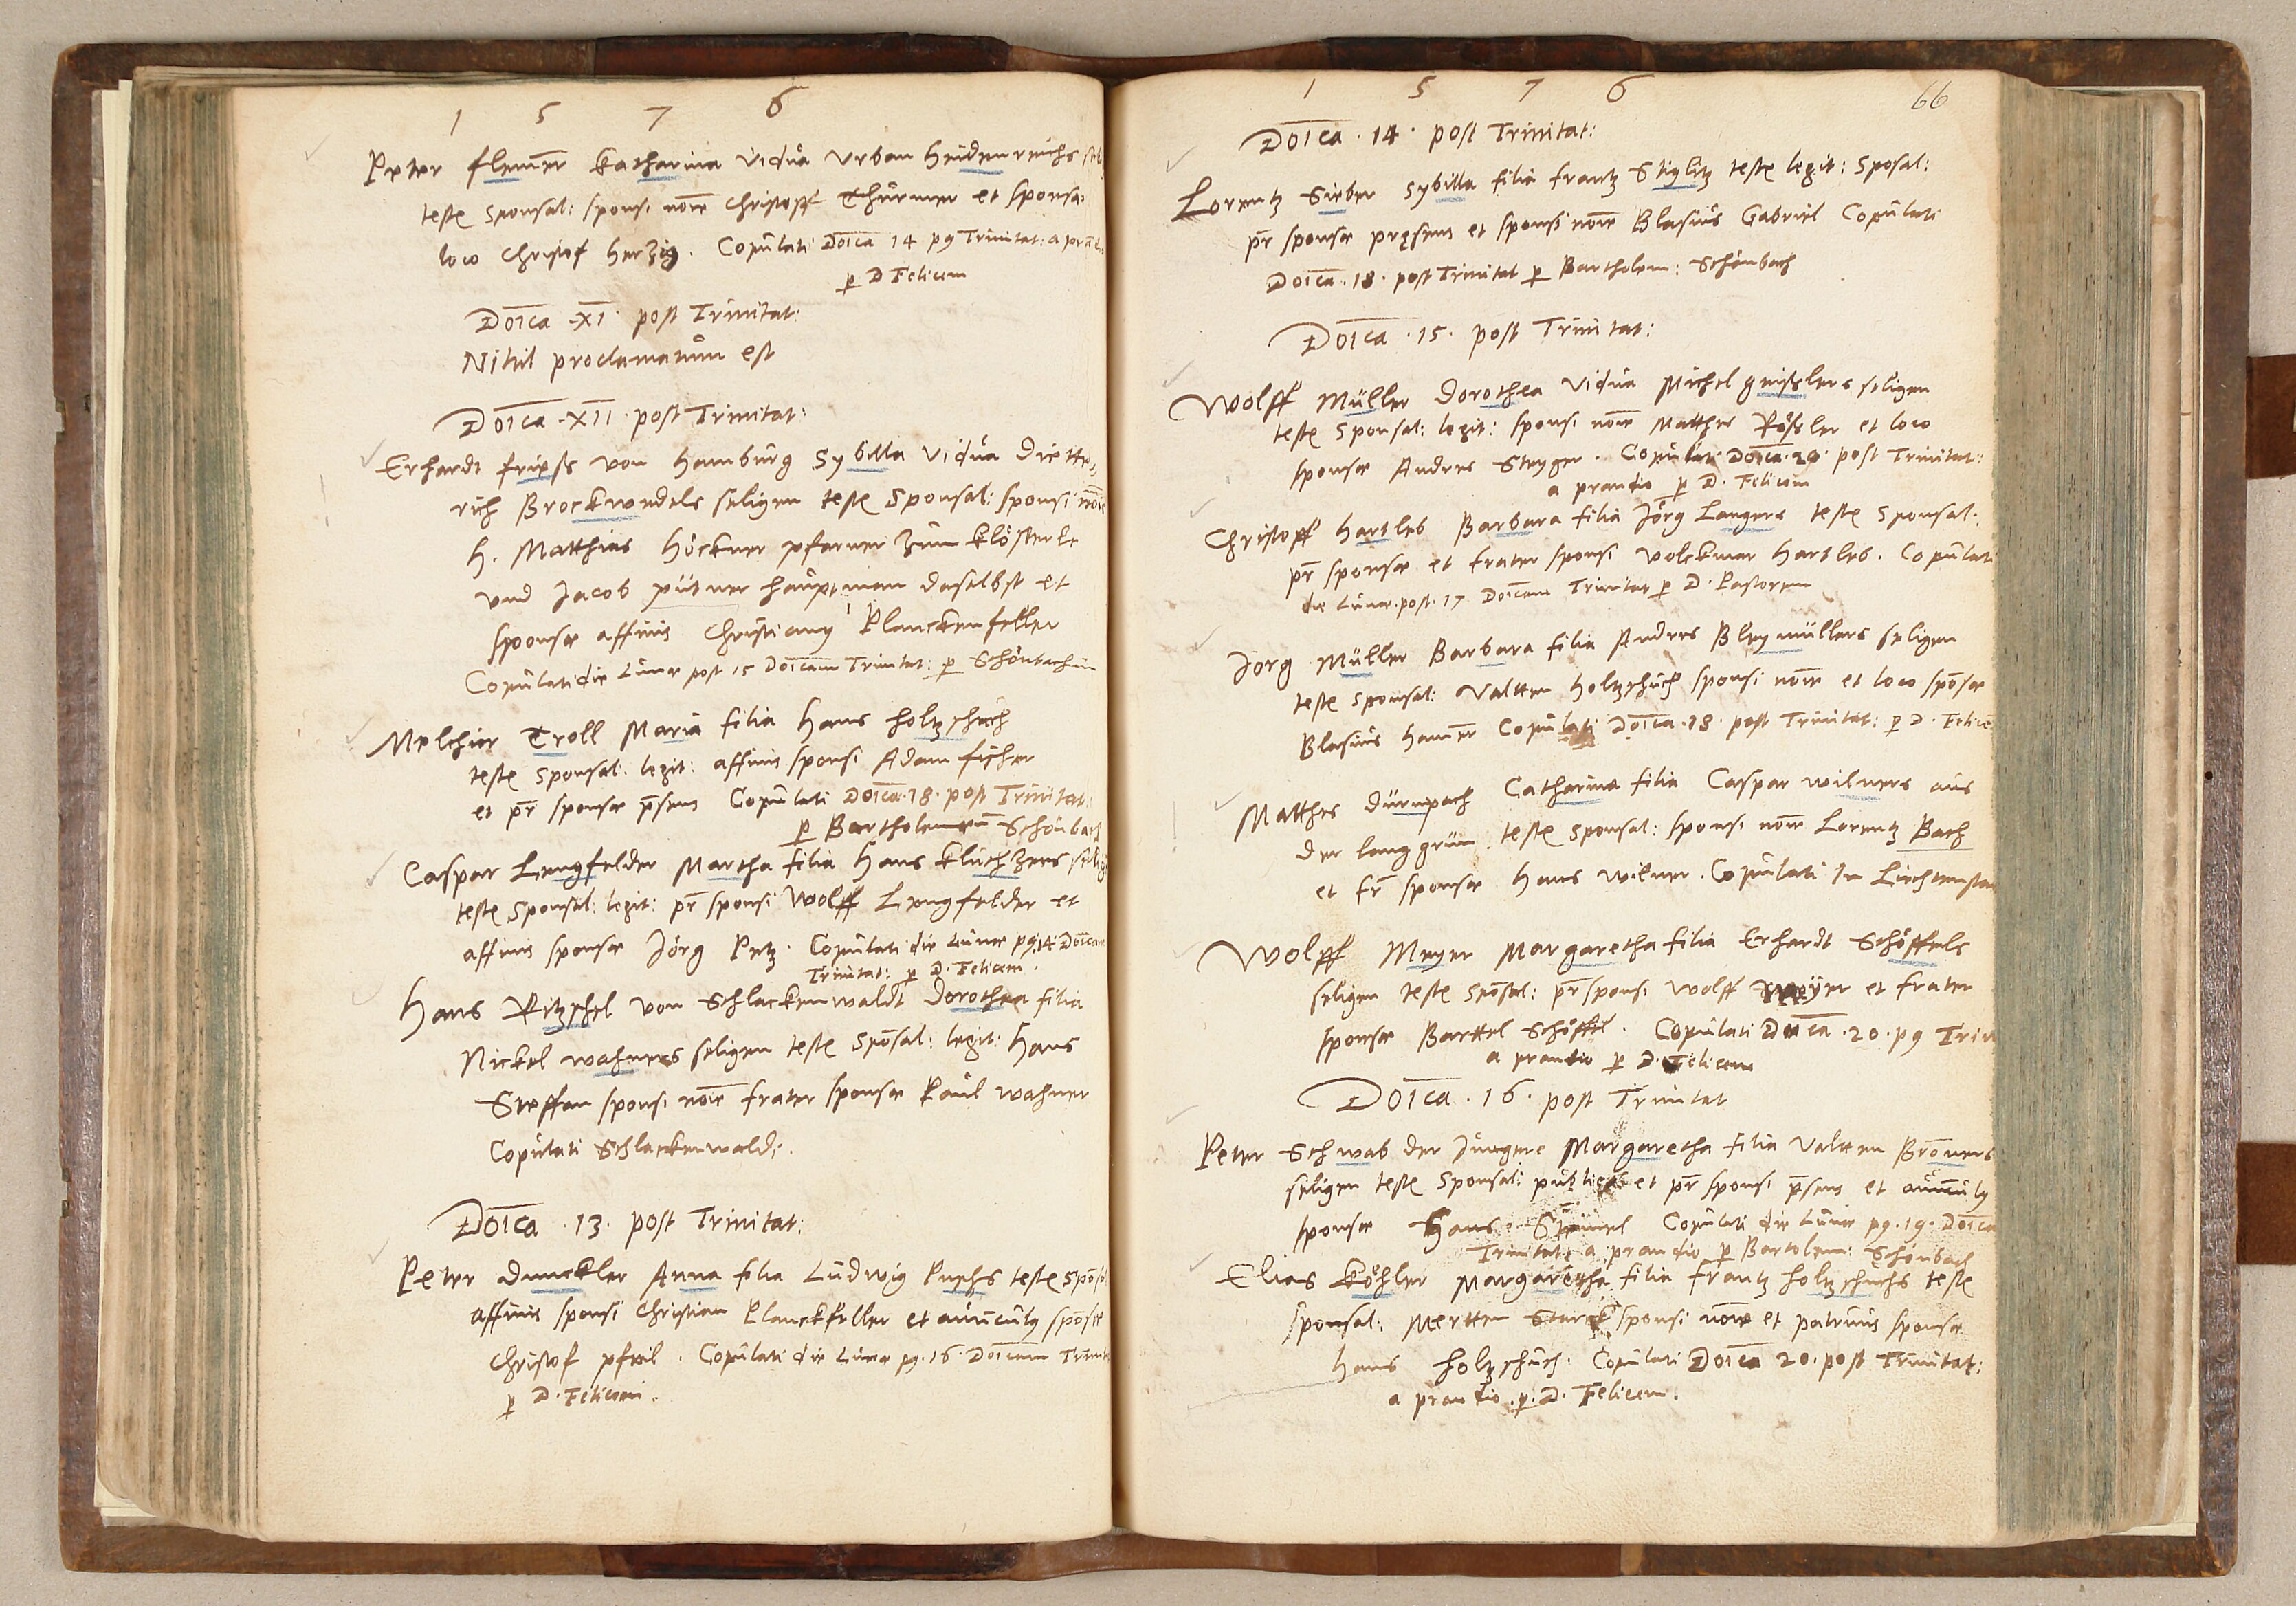 1 5 7 6
Peter Flem̅er Katharina vidua Urban Heidenreichs
testes Sponsal: sponsi no̅ie Christoff Thürmer et sponsæ
loco Christof Herzig. Copulati Do̅ica 14 p9 Trinitat: a
p D Felicem
Do̅ica XI post Trinitat:
Nihil proclamatum est
Do̅ica XII post Trinitat:
Erhardt Frieß von Hamburg Sybilla vidua Diette-
rich Brockwedels seligen testes Sponsal: sponsi no̅ie
H. Matthias Höckner pfarner zum Klösterle
und Jacob Pütner hauptman daselbst et
sponsæ affinis Christian9 Planckenfeller
Copulati die Lunæ post 15 Do̅icam Trinitat: p
Melchior Troll Maria filia Hans Holtzschuch
testes Sponsal: legit: affinis sponsi Adam Fischer
et pr̅ sponsæ p̅sens Copulati Do̅ica 18 post Trinitat:
p Bartholemeu̅ Schönbach
Caspar Lengfelder Martha filia Hans
testes Sponsal: legit: pr̅ sponsi Wolff Lengfelder et
affinis sponsæ Jörg Petz. Copulati die Lunæ p9 14 Do̅icam
Trinitat: p D. Felicem.
Hans Ritzschel von Schlackenwaldt Dorothea filia
Nickel Wahners seligen testes Spo̅sal: legit: Hans
Steffan sponsi no̅ie frater sponsæ Paul Wahner
Copulati Schlackenwald:.
Do̅ica 13 post Trinitat:
Peter Dunckler Anna filia Ludwig testes Spo̅sal
affinis sponsi Christian Planckfeller et auu̅cul9 spo̅sæ
Christof Pfeil. Copulati die Lunæ p9. 16. Do̅icam Trinit
p D. Felicem.
1 5 7 6
66
Do̅ica . 14 . post Trinitat:
Lorentz Sieber Sybilla filia Frantz Stiglitz testes legit: Sposal:
pr̅ sponsæ præsens et sponsi no̅ie Blasius Gabriel Copulati
Do̅ica . 18 . post Trinitat p Bartholem: Schönbach
Do̅ica . 15 . post Trinitat:
Wolff Müller Dorothea vidua Michel Geißlers seligen
testes Sponsal: legit: sponsi no̅ie Matthes Rößler et loco
sponsæ Andres Steyger. Copulat: Do̅ica . 20 . post Trinitat:
a prandio p D. Felicem
Christoff Hartleb Barbara filia Jörg Langers testes Sponsal:
pr̅ sponsæ et frater sponsi Volckmar Hartleb. Copulati
die Lunæ . post . 17 Do̅icam Trinitat p D. Pastorem
Jorg Müller Barbara filia Andres Bleymüllers seligen
testes Sponsal: Valtten Holtzschuch sponsi no̅ie et loco spo̅sæ
Blasius Ham̅er Copulati Do̅ica . 18 . post Trinitat: p D. Felice
Matthes Dürnpach Catharina filia Caspar Wilners aus
der Langgrün. testes Sponsal: sponsi no̅ie Lorentz Bach
et fr̅ sponsæ Hans Wilner. Copulati In
Wolff Meyer Margaretha filia Erhardt Schöffels
seligen testes Spo̅sal: pr̅ sponsi Wolff Meyer et frater
sponsæ Barttel Schöffel. Copulati Do̅ica . 20 . p9 Trin
a prandio p D. Felicem
Do̅ica . 16 . post Trinitat
Peter Schwab der Jüngere Margaretha filia Valtten Bro̅ners
seligen testes Sponsal: et pr̅ sponsi p̅sens et auu̅cul9
sponsæ Hans Copulati die Lunæ p9 . 19 . Do̅ica
Trinitat: a prandio p Bartolem: Schönbach
Elias Köhler Margaretha filia Frantz Holtzschuchs testes
sponsal: Mertten Starck sponsi no̅ie et patruus sponsæ
Hans Holtzschuch. Copulati Do̅ica 20 . post Trinitat:
a prandio . p . D. Felicem.